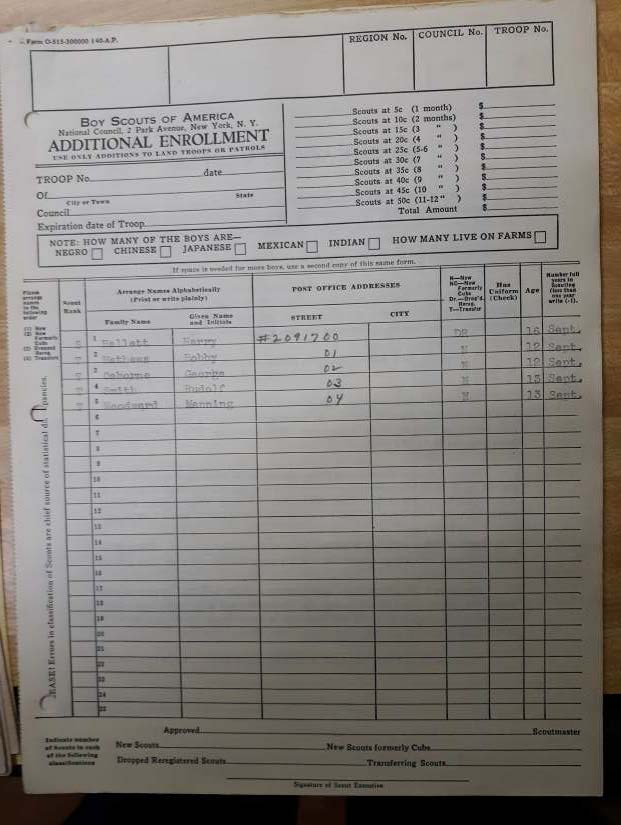 Form O-515-300000 140-A.P.
REGION No. COUNCIL No. TROOP No.
BOY SCOUTS OF AMERICA
National Council, 2 Park Avenue, New York, N. Y.
ADDITIONAL ENROLLMENT
USE ONLY ADDITIONS TO LAND TROOPS OR PATROLS
TROOP No. date
Of
City or Town State
Council
Expiration date of Troop
Scouts at 5c (1 month) $
Scouts at 10c (2 months) $
Scouts at 15c (3 " ) $
Scouts at 20c (4 " ) $
Scouts at 25c (5-6 " ) $
Scouts at 30c (7 " ) $
Scouts at 35c (8 " ) $
Scouts at 40c (9 " ) $
Scouts at 45c (10 " ) $
Scouts at 50c (11-12 " ) $
Total Amount $
NOTE: HOW MANY OF THE BOYS ARE—
NEGRO CHINESE JAPANESE MEXICAN INDIAN HOW MANY LIVE ON FARMS
If space is needed for more boys, use a second copy of this same form.
Please arrange names in the following order
(1) New
(2) New Formerly Cubs
(3) Dropped Rereg.
(4) Transfers
Scout Rank
Arrange Names Alphabetically
(Print or write plainly)
Family Name
Given Name and Initials
POST OFFICE ADDRESSES
STREET CITY
N—New
NC—New Formerly Cubs
Dr.—Drop'd. Rereg.
T—Transfer
Has Uniform (Check)
Age
Number full years in Scouting (less than one year write (-1).
S 1 Hallett Harry #2091700 DR 16 Sept.
2 Bobby 01 N 12 Sept.
3 Osborne George 02 N 12 Sept.
4 Smith Rudolf 03 N 13 Sept.
5 Woodward Manning 04 N 13 Sept.
6
7
8
9
10
11
12
13
14
15
16
17
18
19
20
21
22
23
24
25
EASE! Errors in classification of Scouts are chief source of statistical
Approved Scoutmaster
Indicate number of Scouts in each of the following classifications
New Scouts New Scouts formerly Cubs
Dropped Reregistered Scouts Transferring Scouts
Signature of Scout Executive